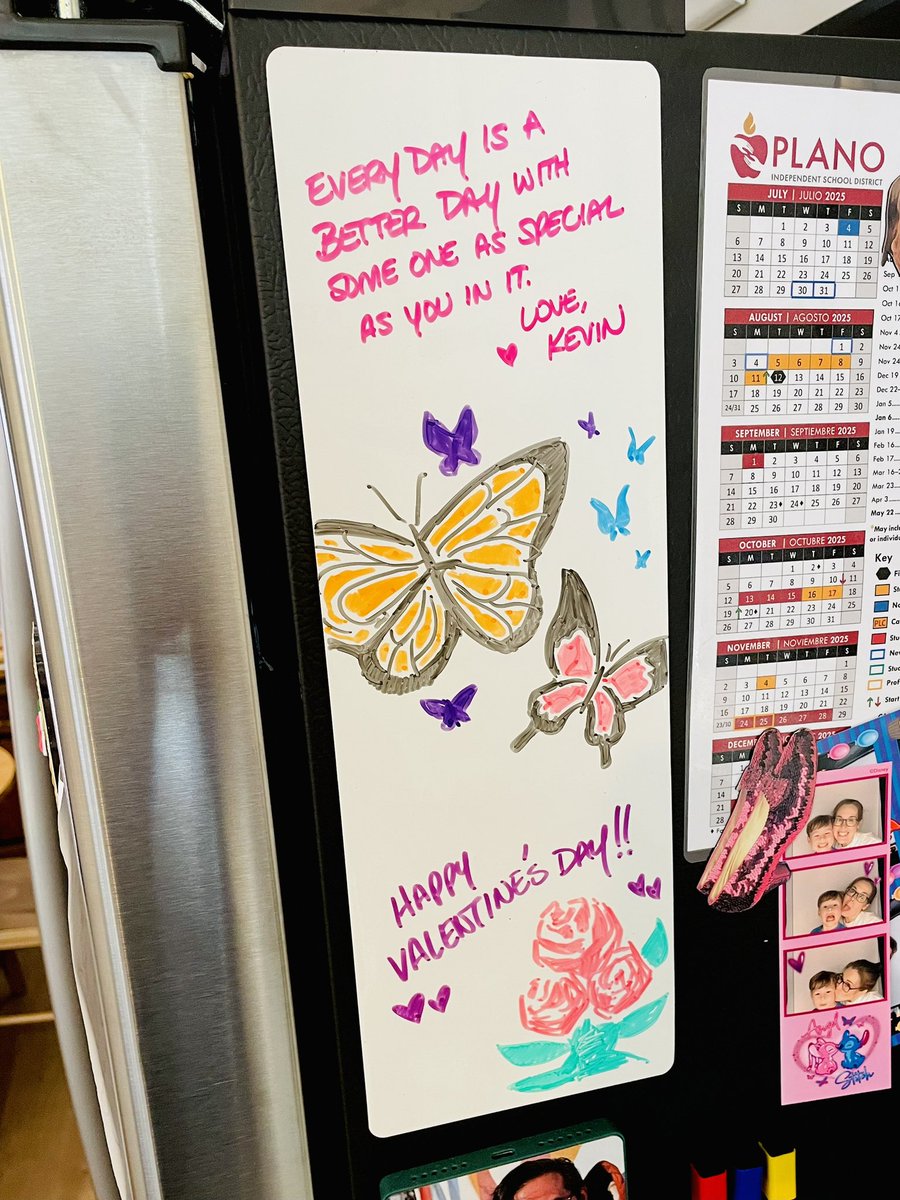 EVERY DAY IS A
BETTER DAY WITH
SOME ONE AS SPECIAL
AS YOU IN IT.
LOVE,
KEVIN
HAPPY
VALENTINE'S DAY!!
PLANO
INDEPENDENT SCHOOL DISTRICT
JULY | JULIO 2025
S M T W T F S
1 2 3 4 5
6 7 8 9 10 11 12
13 14 15 16 17 18 19
20 21 22 23 24 25 26
27 28 29 30 31
AUGUST | AGOSTO 2025
S M T W T F S
1 2
3 4 5 6 7 8 9
10 11 12 13 14 15 16
17 18 19 20 21 22 23
24/31 25 26 27 28 29 30
SEPTEMBER | SEPTIEMBRE 2025
S M T W T F S
1 2 3 4 5 6
7 8 9 10 11 12 13
14 15 16 17 18 19 20
21 22 23 24 25 26 27
28 29 30
OCTOBER | OCTUBRE 2025
S M T W T F S
1 2 3 4
5 6 7 8 9 10 11
12 13 14 15 16 17 18
19 20 21 22 23 24 25
26 27 28 29 30 31
NOVEMBER | NOVIEMBRE 2025
S M T W T F S
1
2 3 4 5 6 7 8
9 10 11 12 13 14 15
16 17 18 19 20 21 22
23/30 24 25 26 27 28 29
7
14
21
28
Sep
Oct 1
Oct 1
Oct 17
Nov 4
Nov 24
Nov 24
Dec 19
Dec 22
Jan 5
Jan 6
Jan 19
Feb 16
Feb 17
Mar 16
Mar 23
Apr 3
May 22
May inclu
or individua
Key
Fi
Sta
No
PLC Ca
Stu
New
Stu
Prof
Start
©Disney
Angel
Stitch